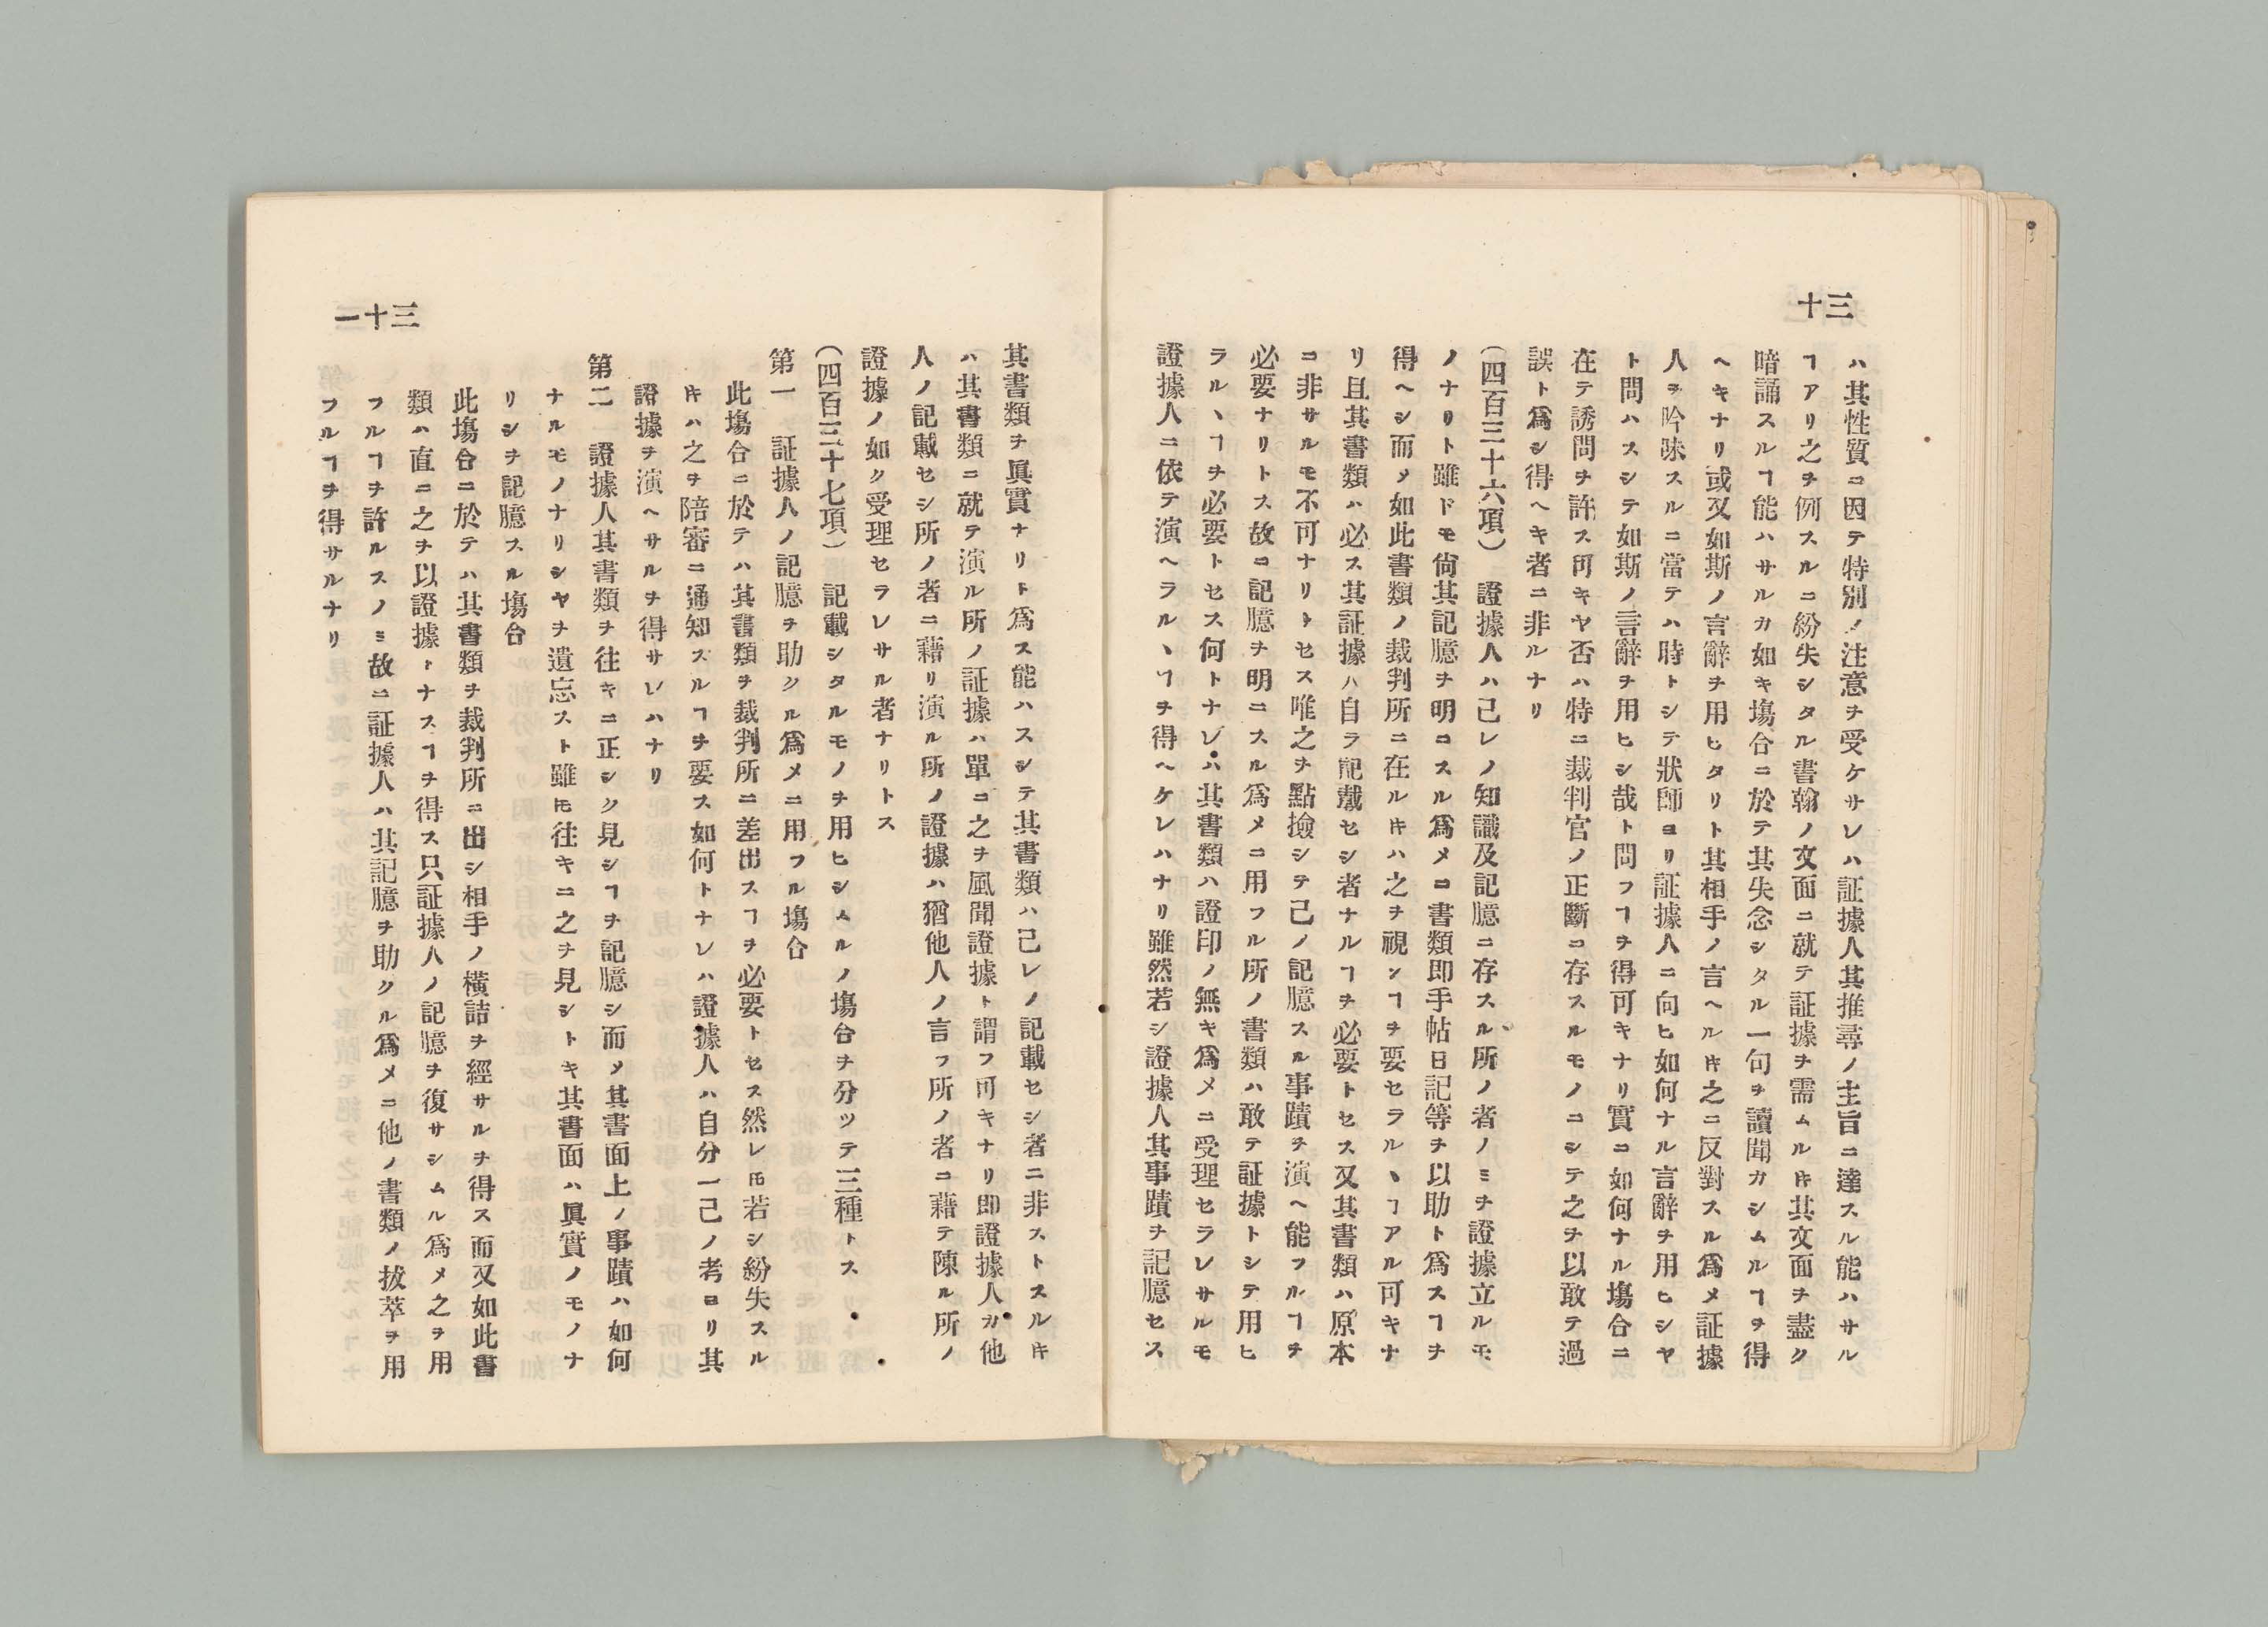 三十
ハ其性質ニ因テ特別ノ注意ヲ受ケサレハ証據人其推尋ノ主旨ニ達スル能ハサル
ヿアリ之ヲ例スルニ紛失シタル書翰ノ文面ニ就テ証據ヲ需ムルキ其文面ヲ盡ク
暗誦スルヿ能ハサルカ如キ塲合ニ於テ其失念シタル一句ヲ讀聞カシムルヿヲ得
ヘキナリ或又如斯ノ言辭ヲ用ヒタリト其相手ノ言ヘルキ之ニ反對スル爲メ証據
人ヲ吟味スルニ當テハ時トシテ狀師ヨリ証據人ニ向ヒ如何ナル言辭ヲ用ヒシヤ
ト問ハスシテ如斯ノ言辭ヲ用ヒシ哉ト問フヿヲ得可キナリ實ニ如何ナル塲合ニ
在テ誘問ヲ許ス可キヤ否ハ特ニ裁判官ノ正斷ニ存スルモノニシテ之ヲ以敢テ過
誤ト爲シ得ヘキ者ニ非ルナリ
（四百三十六項）　證據人ハ己レノ知識及記臆ニ存スル所ノ者ノミヲ證據立ルモ
ノナリト雖ドモ尙其記臆ヲ明ニスル爲メニ書類即手帖日記等ヲ以助ト爲スヿヲ
得ヘシ而メ如此書類ノ裁判所ニ在ルキハ之ヲ視ンヿヲ要セラルヽヿアル可キナ
リ且其書類ハ必ス其証據ハ自ラ記載セシ者ナルヿヲ必要トセス又其書類ハ原本
ニ非サルモ不可ナリトセス唯之ヲ點撿シテ己ノ記臆スル事蹟ヲ演ヘ能フルヿヲ
必要ナリトス故ニ記臆ヲ明ニスル爲メニ用フル所ノ書類ハ敢テ証據トシテ用ヒ
ラルヽヿヲ必要トセス何トナレハ其書類ハ證印ノ無キ爲メニ受理セラレサルモ
證據人ニ依テ演ヘラルヽヿヲ得ヘケレハナリ雖然若シ證據人其事蹟ヲ記臆セス
三十一
其書類ヲ眞實ナリト爲ス能ハスシテ其書類ハ己レノ記載セシ者ニ非ストスルキ
ハ其書類ニ就テ演ル所ノ証據ハ單ニ之ヲ風聞證據ト謂フ可キナリ即證據人カ他
人ノ記載セシ所ノ者ニ藉リ演ル所ノ證據ハ猶他人ノ言フ所ノ者ニ藉テ陳ル所ノ
證據ノ如ク受理セラレサル者ナリトス
（四百三十七項）　記載シタルモノヲ用ヒシムルノ塲合ヲ分ツテ三種トス
第一　証據人ノ記臆ヲ助クル爲メニ用フル塲合
此塲合ニ於テハ其書類ヲ裁判所ニ差出スヿヲ必要トセス然レ𪜈若シ紛失スル
キハ之ヲ陪審ニ通知スルヿヲ要ス如何トナレハ證據人ハ自分一己ノ考ヨリ其
證據ヲ演ヘサルヲ得サレハナリ
第二　證據人其書類ヲ往キニ正シク見シヿヲ記臆シ而メ其書面上ノ事蹟ハ如何
ナルモノナリシヤヲ遺忘スト雖𪜈往キニ之ヲ見シトキ其書面ハ眞實ノモノナ
リシヲ記臆スル塲合
此塲合ニ於テハ其書類ヲ裁判所ニ出シ相手ノ橫詰ヲ經サルヲ得ス而又如此書
類ハ直ニ之ヲ以證據トナスヿヲ得ス只証據人ノ記臆ヲ復サシムル爲メ之ヲ用
フルヿヲ許ルスノミ故ニ証據人ハ其記臆ヲ助クル爲メニ他ノ書類ノ拔萃ヲ用
フルヿヲ得サルナリ